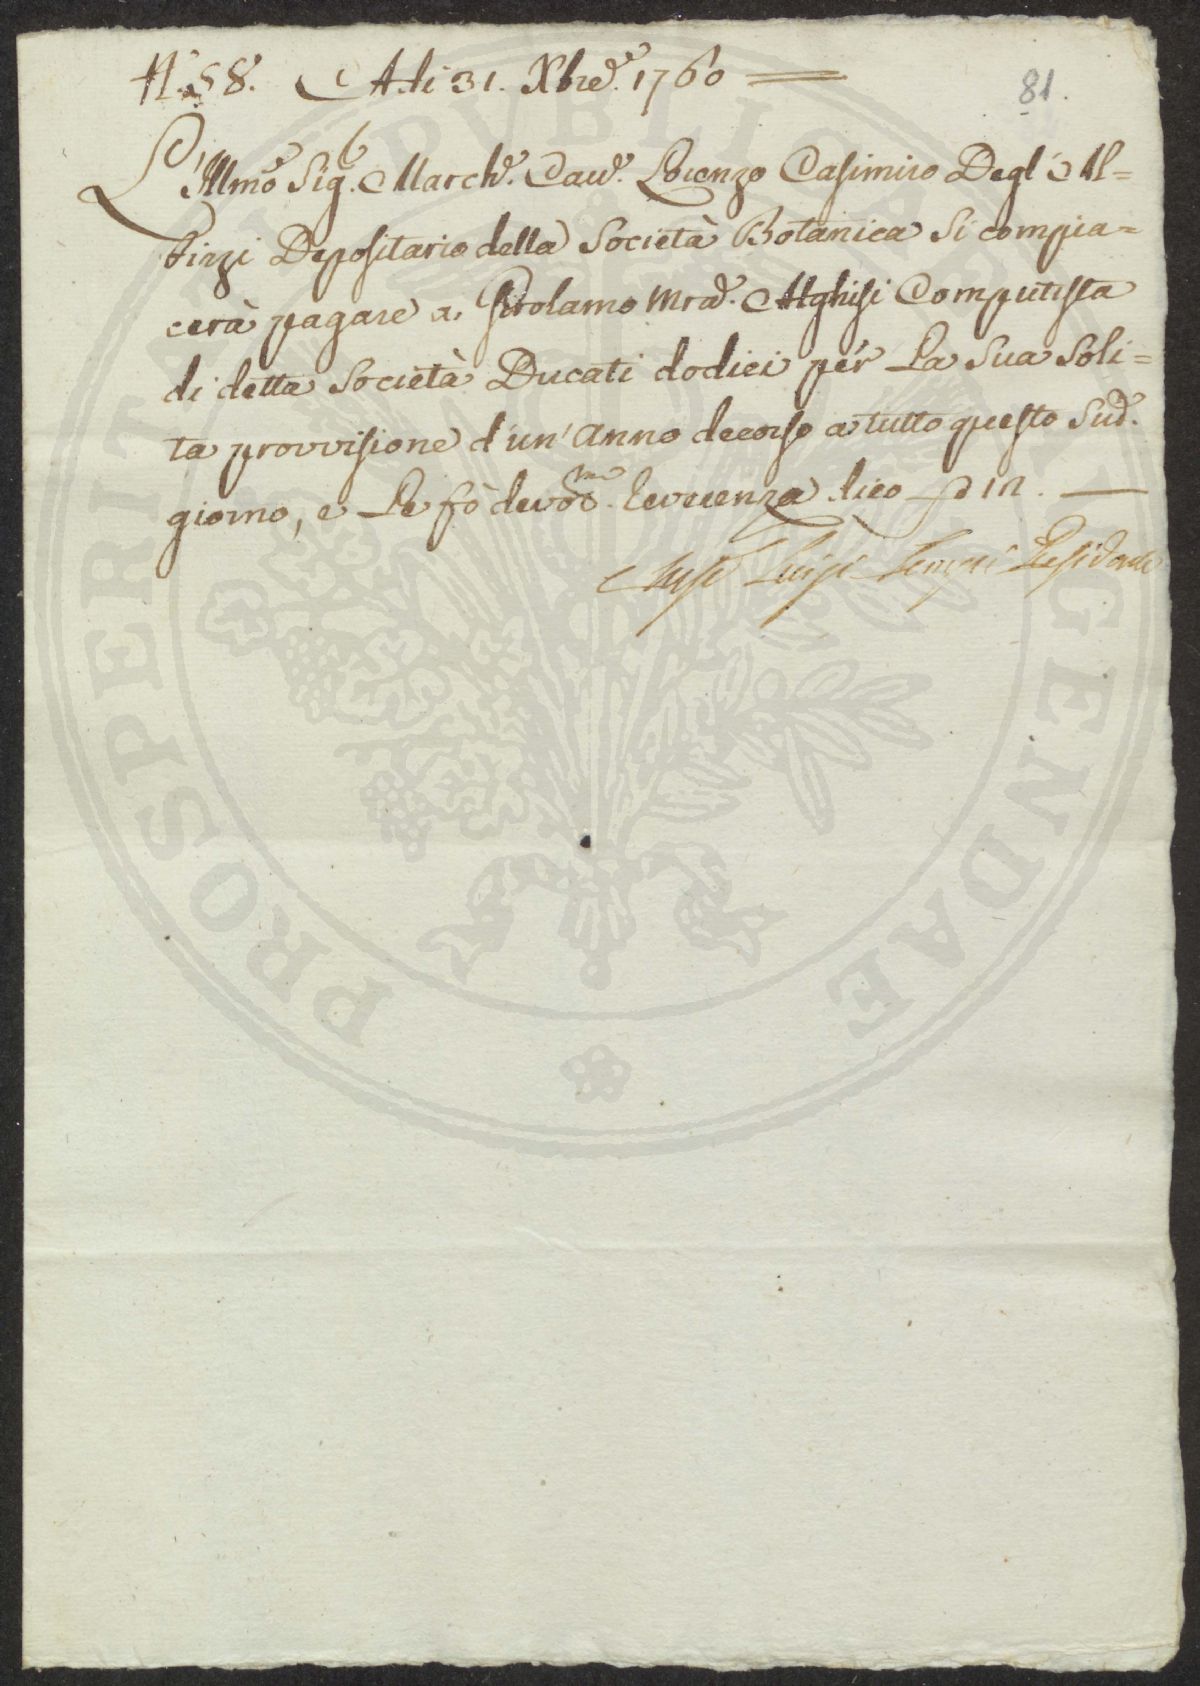 N.° 58. A di 31. Xbre. 1760
81.
L'Illmo Sig.r March. Cav. Lorenzo Casimiro Degl' Al=
bizzi Depositario della Società Botanica si compia=
cerà pagare a Girolamo Mrā. Alghisi Computista
di detta Società Ducati dodici per La Sua Soli=
ta provvisione d'un' Anno decorso a tutto questo Sud.
giorno, e Le fò devōma. Reverenza dico 12.
Luigi Tempi Presidente
PROSPERITATI PUBLICAE AUGENDAE